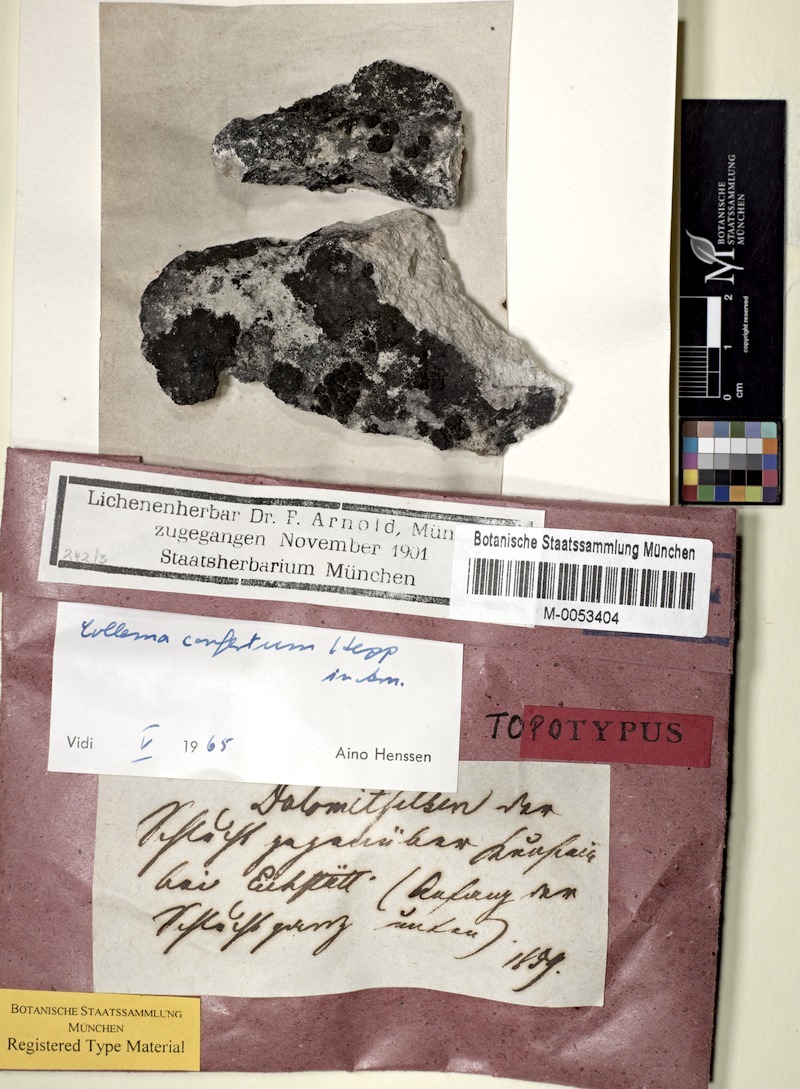 BOTANISCHE
STAATSSAMMLUNG
MÜNCHEN
0 1 2
cm
copyright reserved
Lichenenherbar Dr. F. Arnold, Mün
zugegangen November 1901
Staatsherbarium München
242/3
Botanische Staatssammlung München
M-0053404
Collema confertum Hepp
in Arn.
Vidi V 1965 Aino Henssen
TOPOTYPUS
Dolomitfelsen der
Schlucht gegenüber
bei Eichstätt (Anfang der
Schlucht ganz unten)
1859.
BOTANISCHE STAATSSAMMLUNG
MÜNCHEN
Registered Type Material